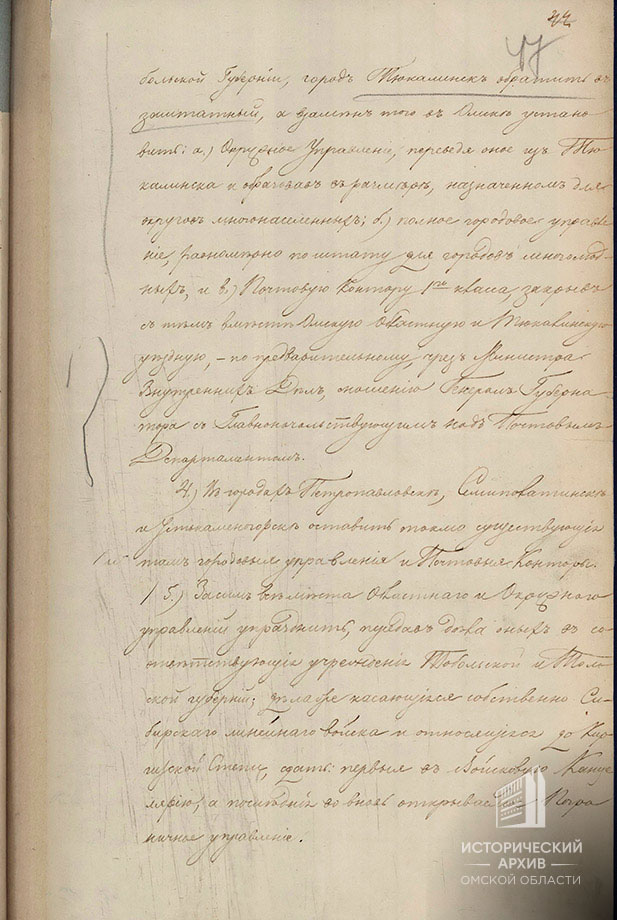 44
47
больской Губерніи, городъ Тюкалинскъ обратить въ
заштатный, а взамѣнъ того въ Омскѣ устано
вить: а.) Окружное Управленіе, переведя оное изъ Тю
калинска и образовавъ въ размѣрѣ, назначенномъ для
округовъ многонаселенныхъ; б.) полное городовое управле
ніе, равномѣрно по штату для городовъ многолюд-
ныхъ, и в.) Почтовую Контору 1го класса закрывъ
съ тѣмъ вмѣстѣ Омскую Областную и Тюкалинскую
уѣздную, – по предварительному, чрезъ Министра
Внутреннихъ Дѣлъ, сношенію Генералъ Губерна
тора съ Главноначальствующимъ надъ Почтовымъ
Департаментомъ.
4.) Въ городахъ Петропавловскѣ, Семипалатинскѣ
и Устькаменогорскѣ оставить токмо существующія
тамъ городовыя управленія и Почтовыя Конторы.
5.) Засимъ всѣ мѣста Областнаго и Окружнаго
управленій упразднить, передавъ дѣла оныхъ въ со
отвѣтствующія учрежденія Тобольской и Том
ской губерній; дѣла же касающіяся собственно Си-
бирскаго линейнаго войска и относящіяся до Кир
гизской Степи, сдать: первыя въ Войсковую Канце
лярію, а послѣднія во вновь открываемое Погра
ничное управленіе.
ИСТОРИЧЕСКИЙ
АРХИВ
ОМСКОЙ ОБЛАСТИ